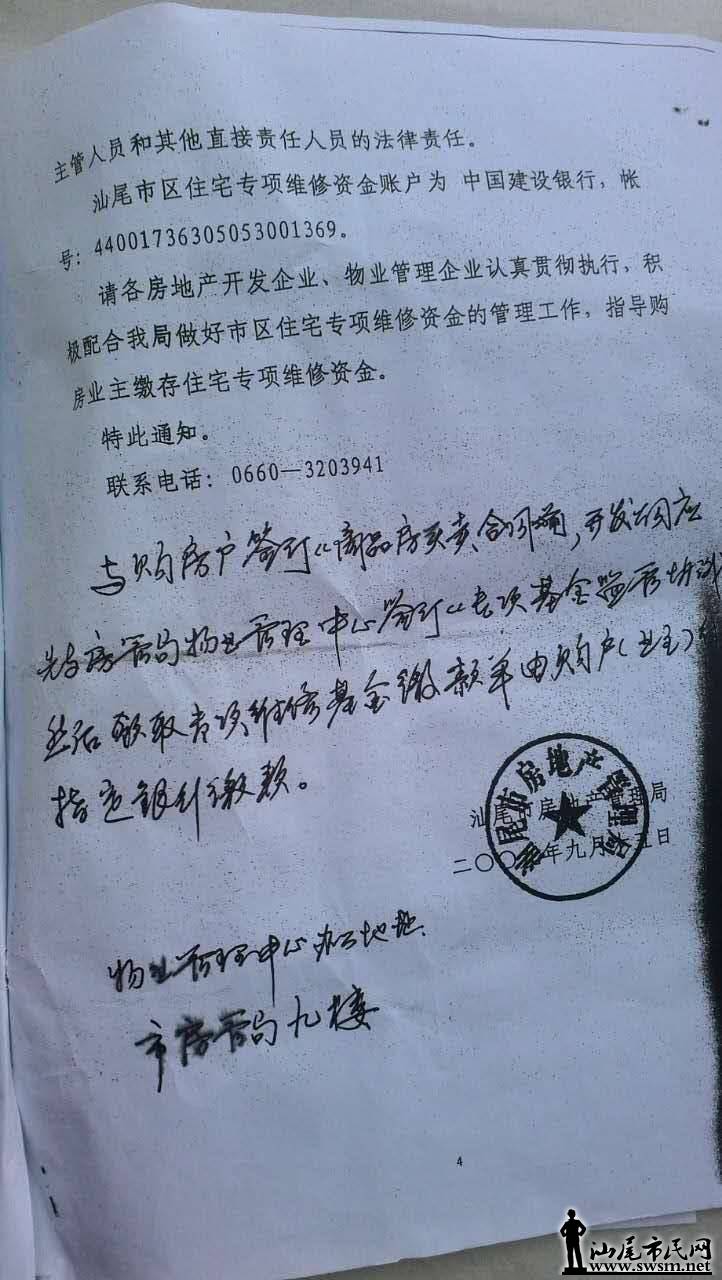 主管人员和其他直接责任人员的法律责任。
汕尾市区住宅专项维修资金账户为 中国建设银行，帐
号：44001736305053001369。
请各房地产开发企业、物业管理企业认真贯彻执行，积
极配合我局做好市区住宅专项维修资金的管理工作，指导购
房业主缴存住宅专项维修资金。
特此通知。
联系电话：0660—3203941
与购房户签订《商品房买卖合同前，开发公司应
先与房管局物业管理中心签订《专项基金监管协议
然后领取专项维修基金缴款单由购户（业主）
指定银行缴款。
汕尾市房地产管理局
二〇〇 年九月 五日
汕尾市房地产管理局
物业管理中心办公地址.
市房管局九楼
4
汕尾市民网
www.swsm.net